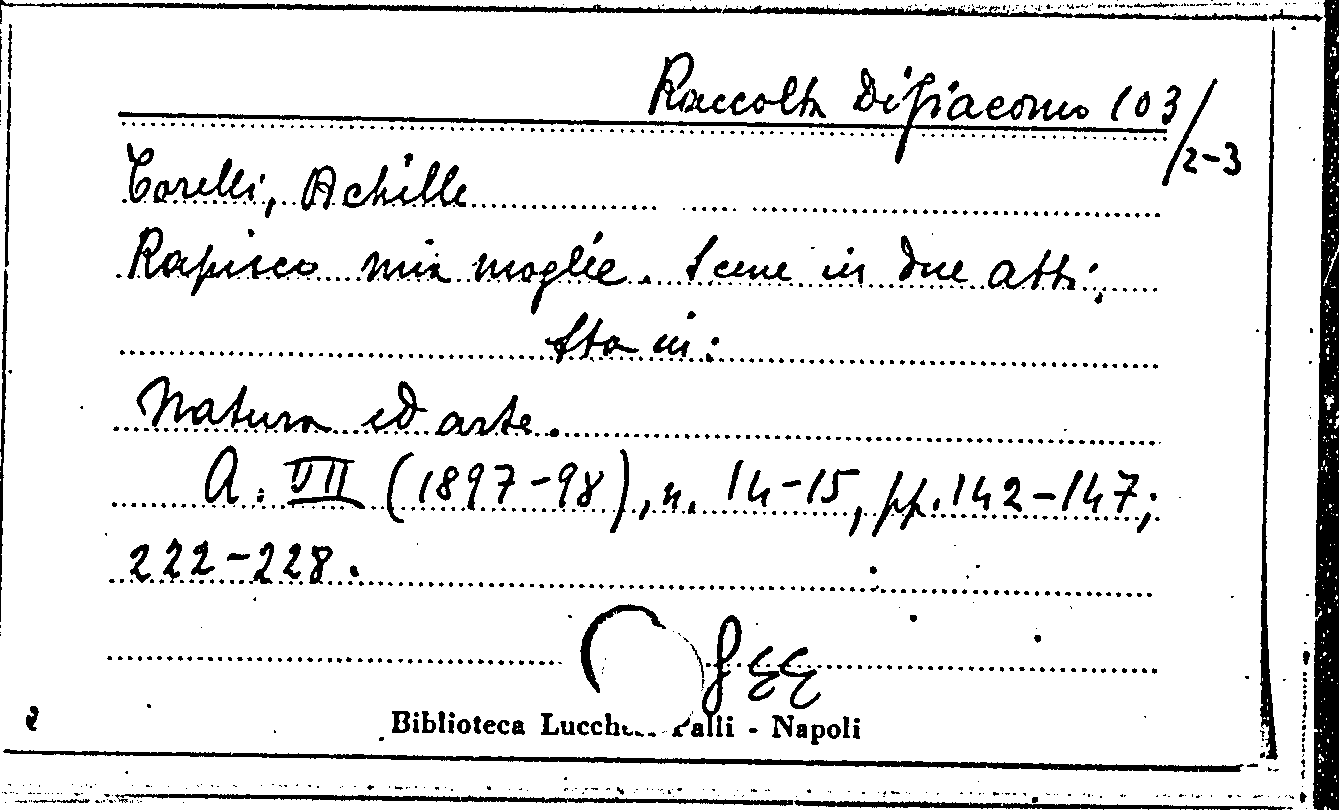 Raccolta Di Giacomo 103/2-3
Torelli, Achille
Rapisco mia moglie. Scene in due atti;
Sta in:
Natura ed arte.
A. VII (1897-98), n. 14-15, pp. 142-147;
222-228.
Biblioteca Lucch Palli - Napoli